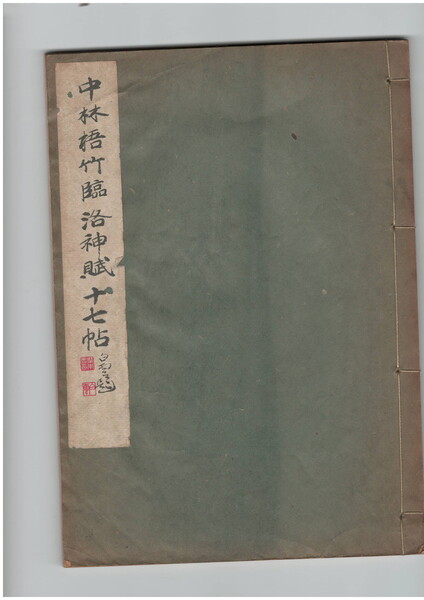 中林梧竹臨洛神賦十七帖